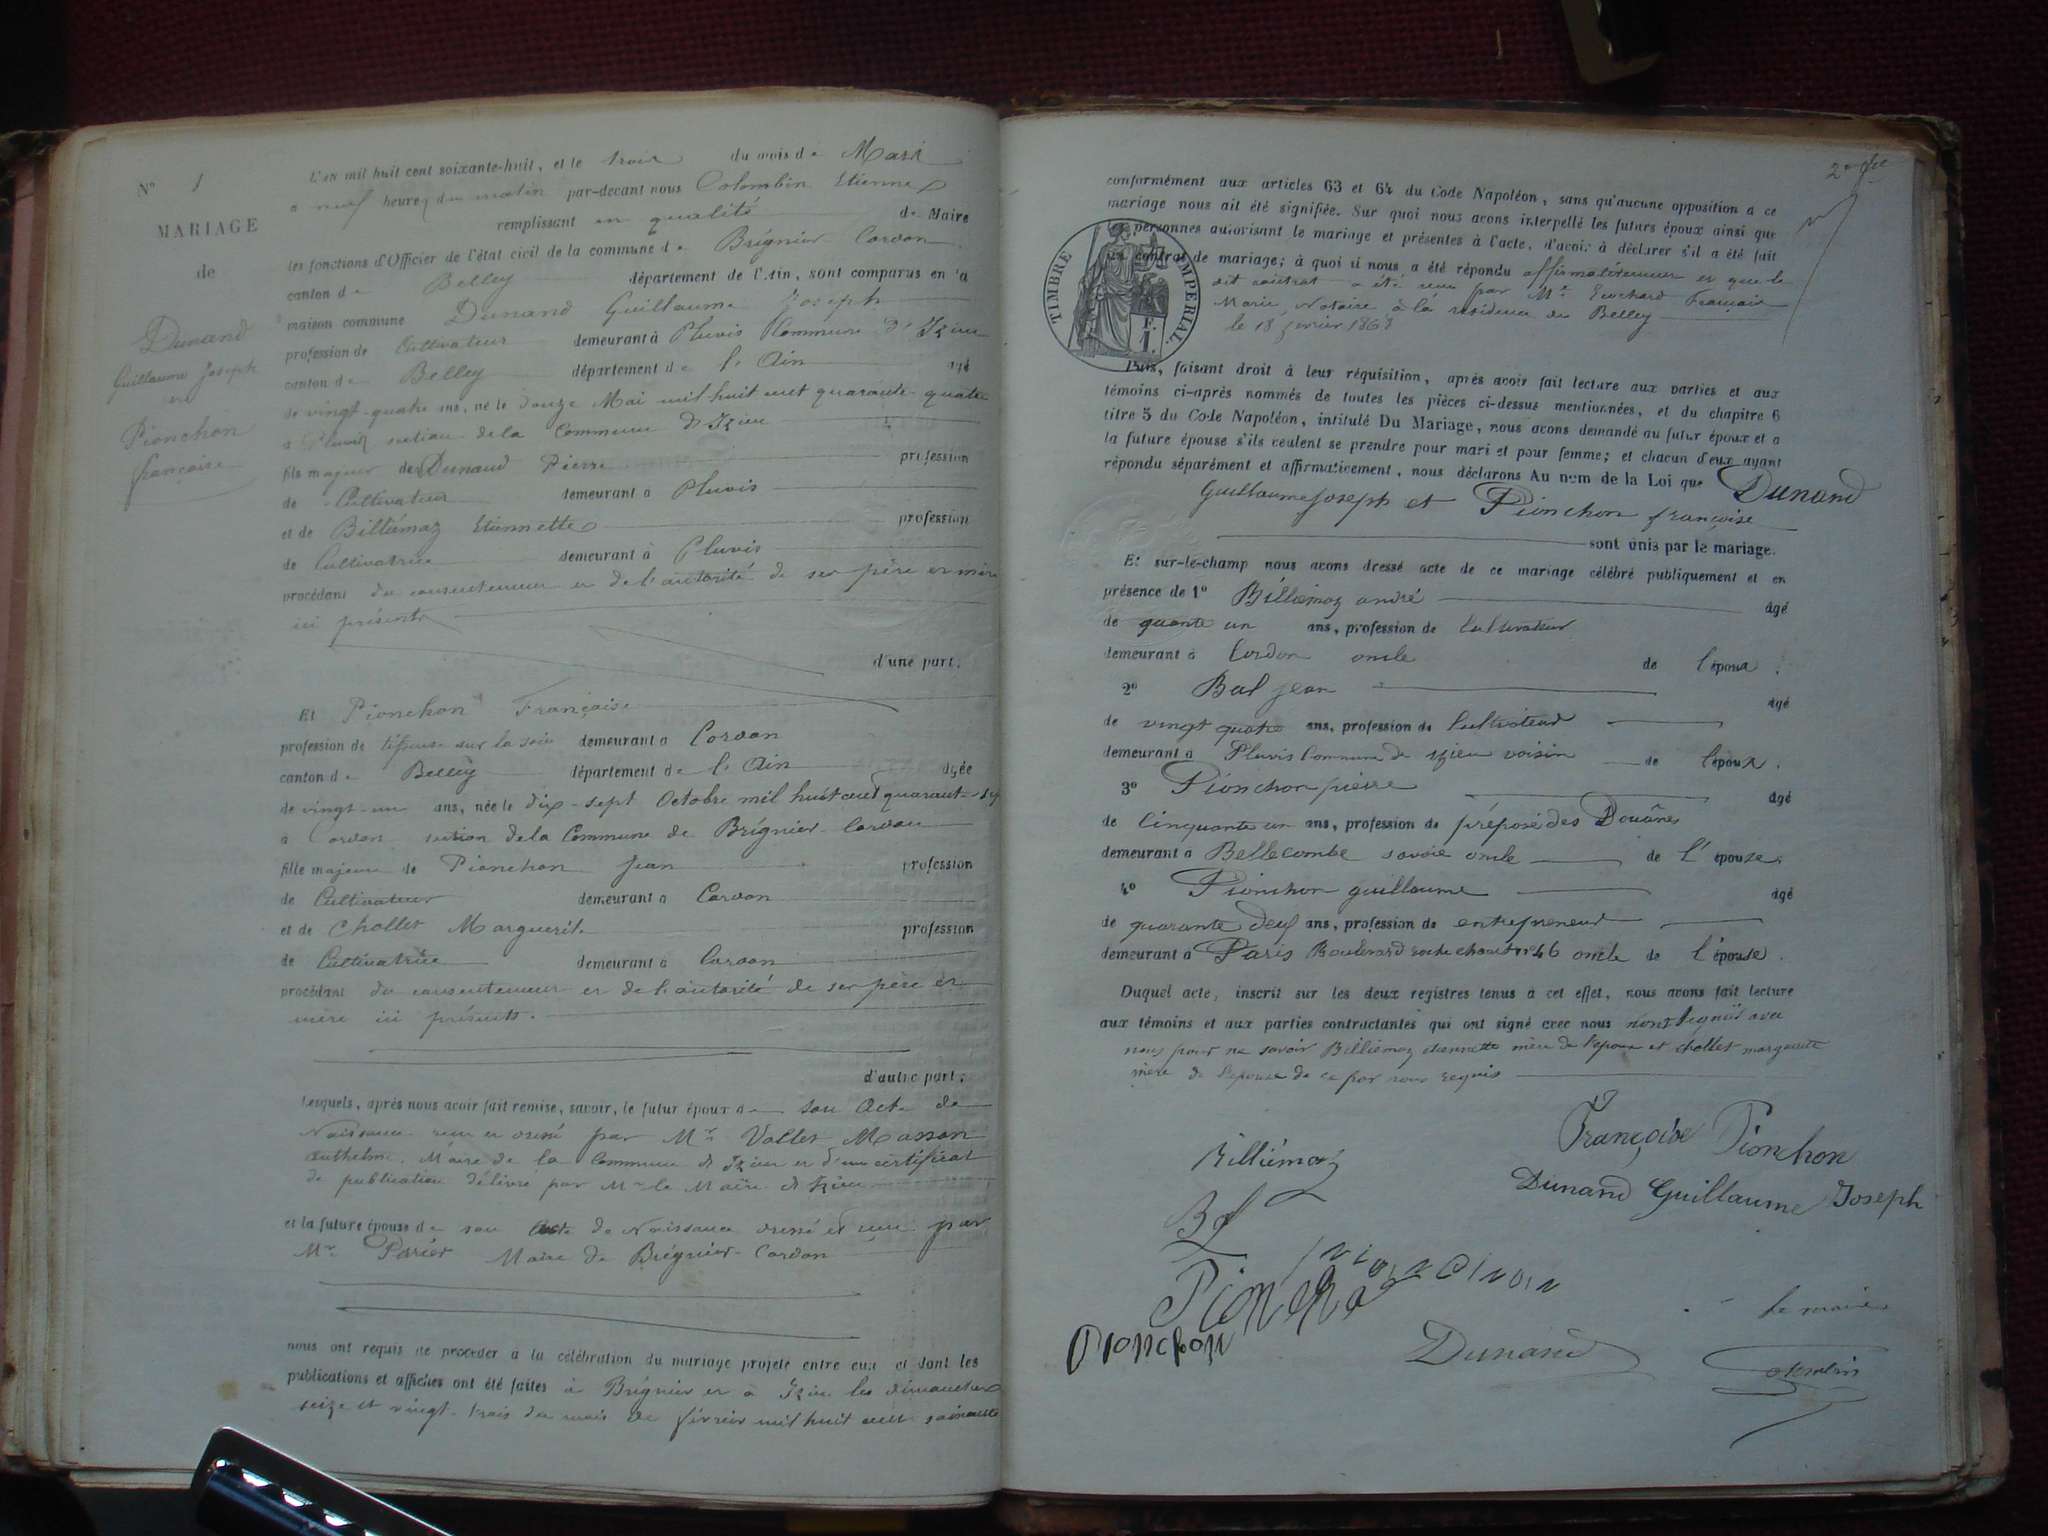 N° 1
MARIAGE
de
Dunand
Guillaume Joseph
et
Pionchon
française
L'en mil huit cent soixante-huit, et le trois du mois de Mars
a neuf heures du matin par-devant nous Colombin Etienne
remplissant en qualité de Maire
les fonctions d'Officier de l'état civil de la commune de Brégnier-Cordon
canton de Belley département de l'Ain, sont comparus en la
maison commune Dunand Guillaume Joseph
profession de Cultivateur demeurant à Pluvis Commune d'Izieu
canton de Belley département de l'Ain âgé
de vingt-quatre ans, né le douze Mai mil huit cent quarante-quatre
a Pluvis section de la Commune d'Izieu
fils majeur de Dunand Pierre profession
de Cultivateur demeurant à Pluvis
et de Billiémaz Etiennette profession
de Cultivatrice demeurant à Pluvis
procédant du consentement et de l'autorité de ses père et mère
ici présents
d'une part,
Et Pionchon Française
profession de sur la soie demeurant à Cordon
canton de Belley département de l'Ain âgée
de vingt-un ans, née le dix-sept Octobre mil huit cent quarante
a Cordon section de la Commune de Brégnier-Cordon
fille majeure de Pionchon Jean profession
de Cultivateur demeurant à Cordon
et de Chollet Marguerite profession
de Cultivatrice demeurant à Cordon
procédant du consentement et de l'autorité de ses père et
mère ici présents.
d'autre part;
Lesquels, après nous avoir fait remise, savoir, le futur époux de son Acte de
Naissance reçu et dressé par Mr Vallet Masson
Anthelme Maire de la Commune d'Izieu et d'un certificat
de publication délivré par Mr le Maire d'Izieu
et la future épouse de son acte de Naissance dressé et reçu par
Mr Parier Maire de Brégnier-Cordon
nous ont requis de procéder à la célébration du mariage projeté entre eux et dont les
publications et affiches ont été faites à Brégnier et à Izieu les dimanches
seize et vingt-trois du mois de février mil huit cent soixante
2e
conformément aux articles 63 et 64 du Code Napoléon, sans qu'aucune opposition a ce
mariage nous ait été signifiée. Sur quoi nous avons interpellé les futurs époux ainsi que
personnes autorisant le mariage et présentes à l'acte, d'avoir à déclarer s'il a été fait
un contrat de mariage; à quoi il nous a été répondu affirmativement et que le
dit contrat a été reçu par Me François
Marie, Notaire, à la résidence de Belley
le 18 février 1868
TIMBRE IMPERIAL
F.
1.
Puis, faisant droit à leur réquisition, après avoir fait lecture aux parties et aux
témoins ci-après nommés de toutes les pièces ci-dessus mentionnées, et du chapitre 6
titre 5 du Code Napoléon, intitulé Du Mariage, nous avons demandé au futur époux et a
la future épouse s'ils veulent se prendre pour mari et pour femme; et chacun d'eux ayant
répondu séparément et affirmativement, nous déclarons Au nom de la Loi que Dunand
Guillaume Joseph et Pionchon françoise
sont unis par le mariage.
Et sur-le-champ nous avons dressé acte de ce mariage célébré publiquement et en
présence de 1° Billiemaz andré âgé
de quante un ans, profession de Cultivateur
demeurant à Cordon oncle de l'époux.
2° Bal jean âgé
de vingt quatre ans, profession de Cultivateur
demeurant à Pluvis Commune de izieu voisin de l'époux.
3° Pionchon pierre âgé
de Cinquante un ans, profession de préposé des Douânes
demeurant à Bellecombe savoie oncle de l'épouse,
4° Pionchon guillaume âgé
de quarante deux ans, profession de entrepreneur
demeurant à Paris Boulevard rochechouart n° 46 oncle de l'épouse.
Duquel acte, inscrit sur les deux registres tenus à cet effet, nous avons fait lecture
aux témoins et aux parties contractantes qui ont signé avec nous avec
nous pour ne savoir Billiemaz etiennette mère de l'epoux et chollet marguerite
mère de l'epouse de ce par nous requis
Françoise Pionchon
Billiémaz
Dunand Guillaume Joseph
Bal
Pionchon
Pionchon
Pionchon
Dunand
le maire
Colombin